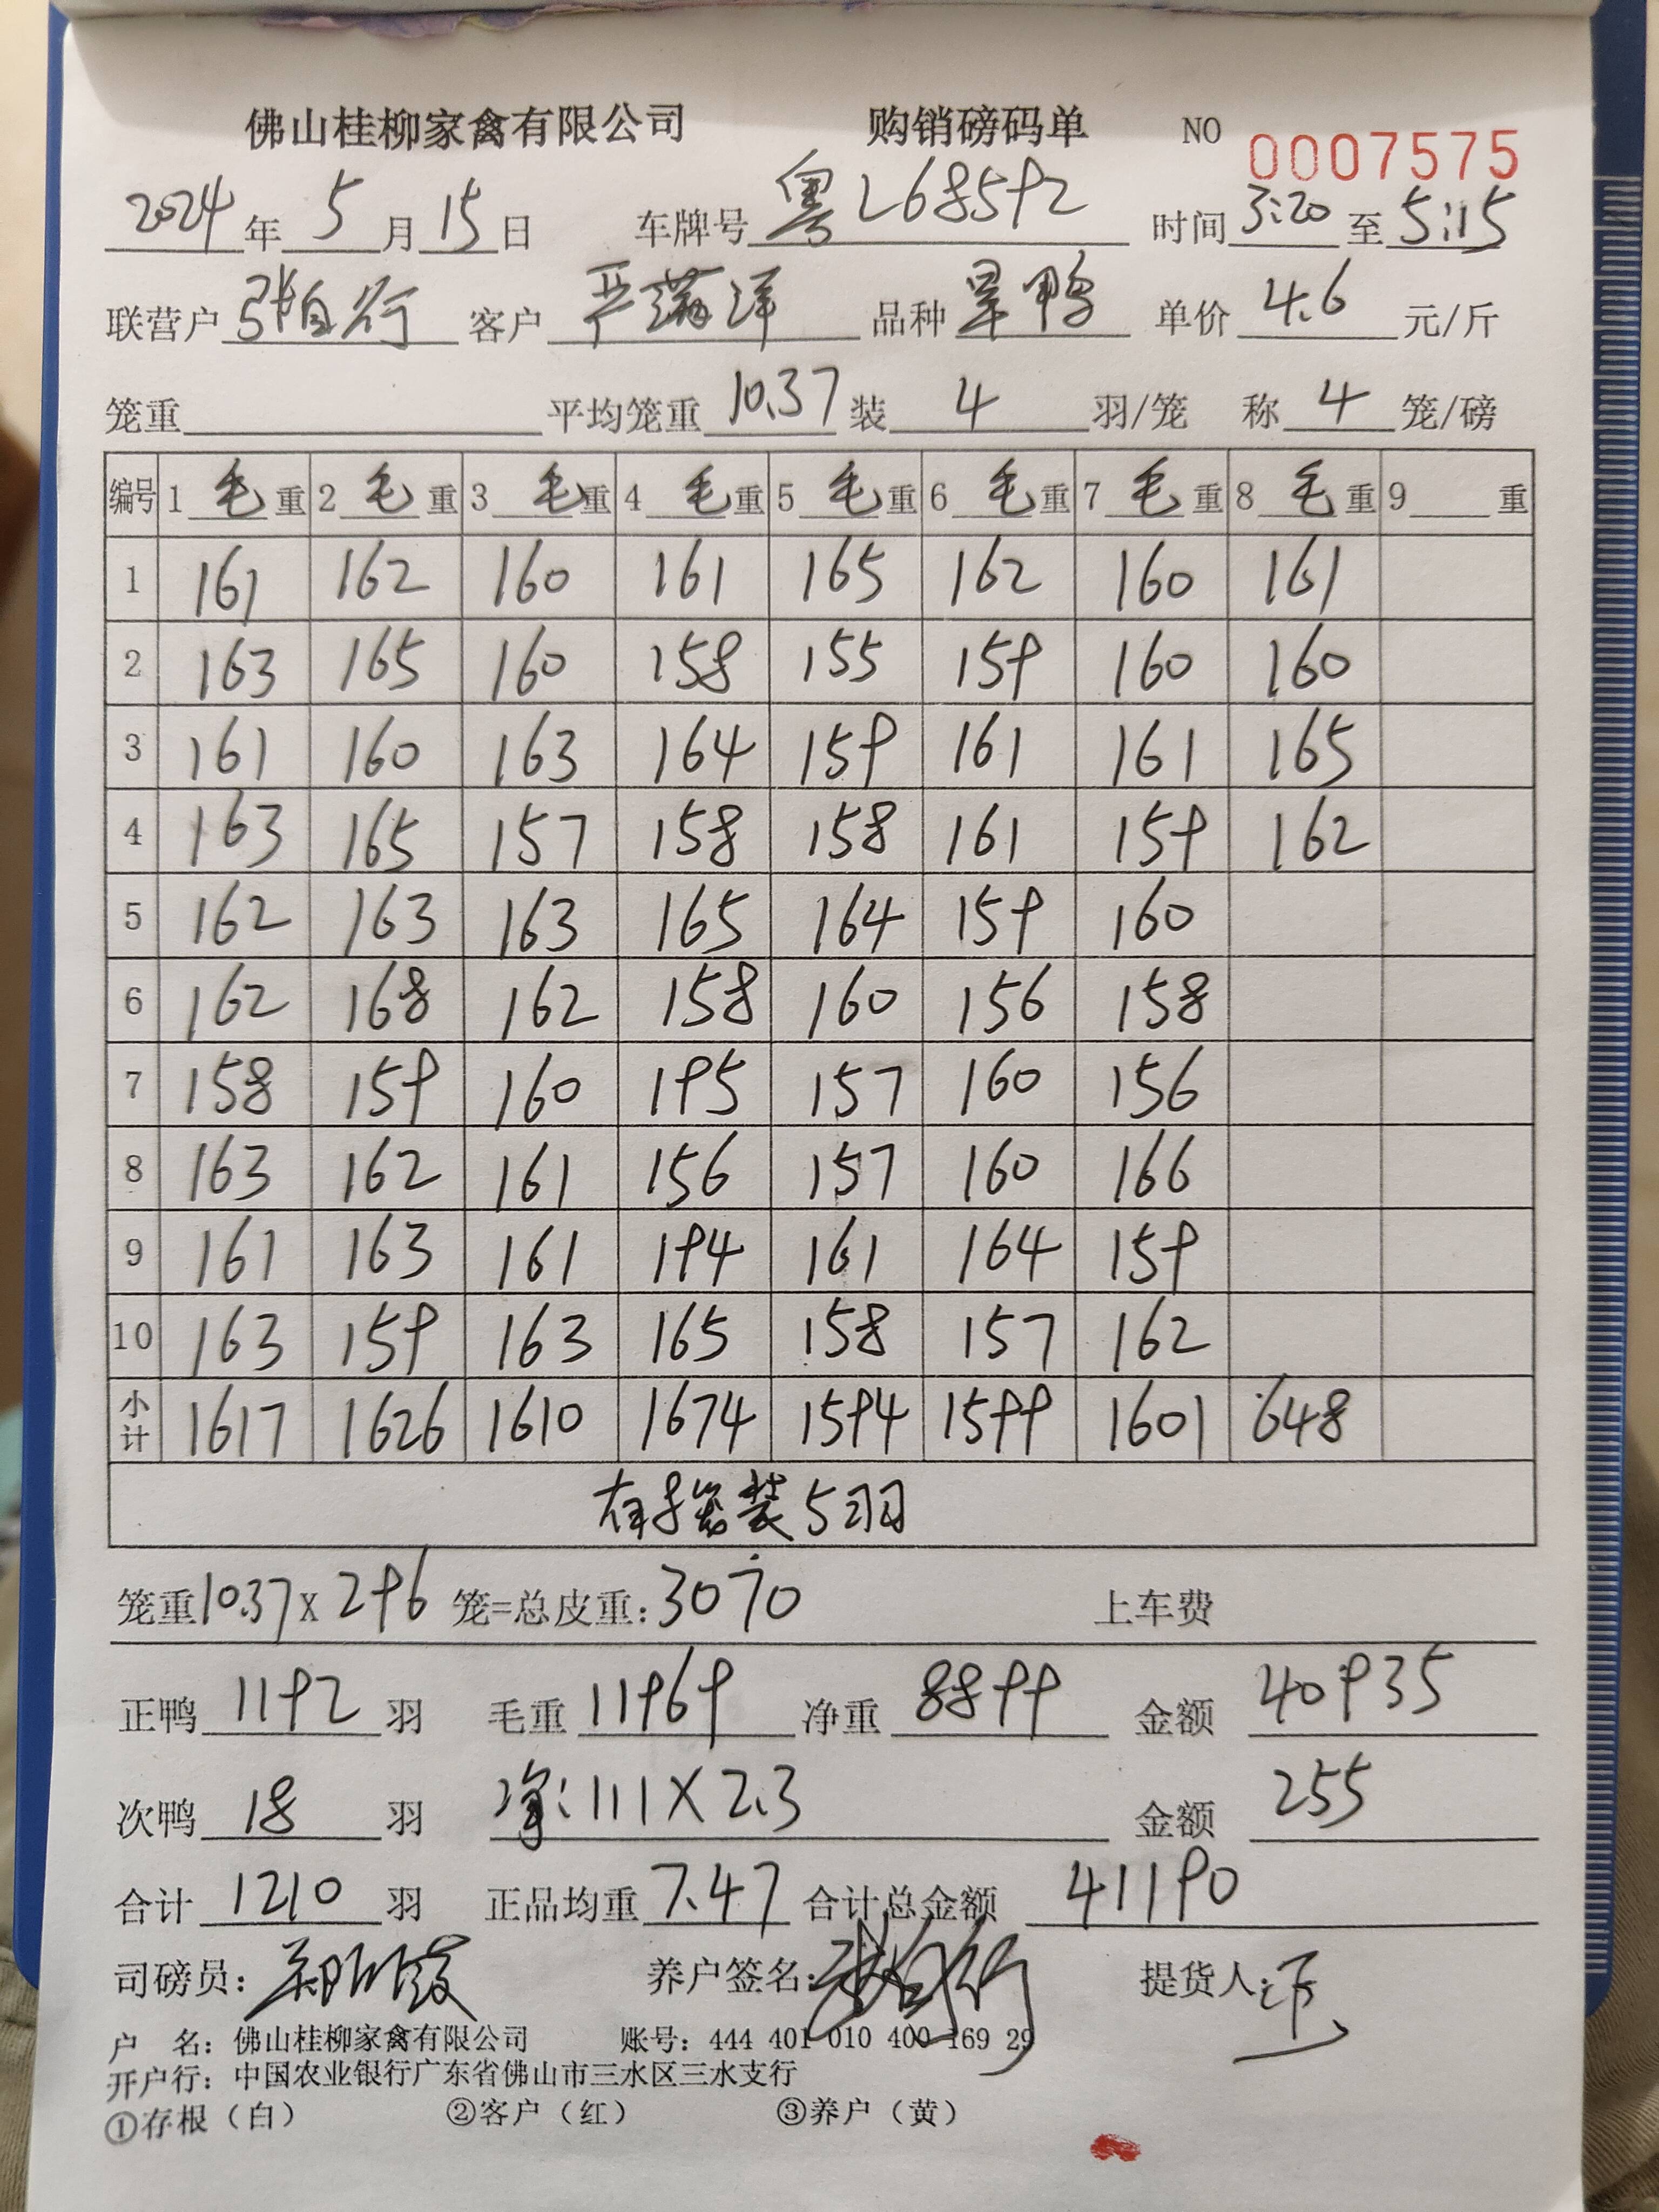 佛山桂柳家禽有限公司 购销磅码单 NO 0007575
2024年5月15日 车牌号 粤L68592 时间 3:20 至 5:15
联营户 张自行 客户 严满洋 品种 旱鸭 单价 4.6 元/斤
笼重 平均笼重 10.37 装 4 羽/笼 称 4 笼/磅
编号 1 毛 重 2 毛 重 3 毛 重 4 毛 重 5 毛 重 6 毛 重 7 毛 重 8 毛 重 9 重
1 161 162 160 161 165 162 160 161
2 163 165 160 158 155 159 160 160
3 161 160 163 164 159 161 161 165
4 163 165 157 158 158 161 159 162
5 162 163 163 165 164 159 160
6 162 168 162 158 160 156 158
7 158 159 160 195 157 160 156
8 163 162 161 156 157 160 166
9 161 163 161 194 161 164 159
10 163 159 163 165 158 157 162
小计 1617 1626 1610 1674 1594 1599 1601 648
有 装5羽
笼重10.37x296 笼=总皮重:3070 上车费
正鸭 1192 羽 毛重 11969 净重 8899 金额 40935
次鸭 18 羽 净:111X2.3 金额 255
合计 1210 羽 正品均重 7.47 合计总金额 41190
司磅员: 养户签名: 张自行 提货人:
户 名:佛山桂柳家禽有限公司 账号:444 401 010 400 169 29
开户行:中国农业银行广东省佛山市三水区三水支行
①存根(白) ②客户(红) ③养户(黄)